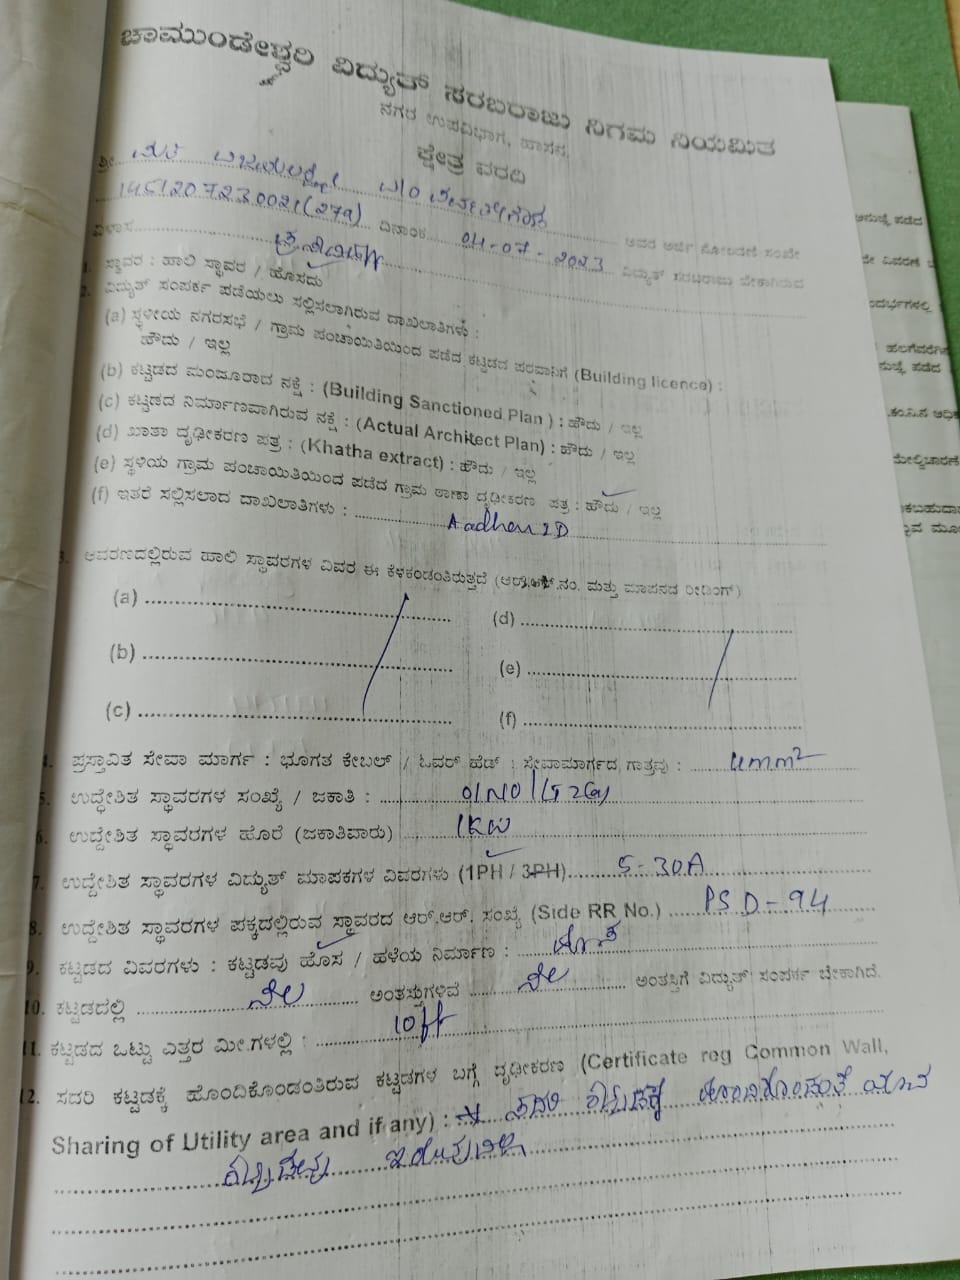 ಚಾಮುಂಡೇಶ್ವರಿ ವಿದ್ಯುತ್ ಸರಬರಾಜು ನಿಗಮ ನಿಯಮಿತ
ನಗರ ಉಪವಿಭಾಗ, ಹಾಸನ.
ಕ್ಷೇತ್ರ ವರದಿ
ಶ್ರೀ.
145120723002(279) ದಿನಾಂಕ 04-07-2023 ಅವರ ಅರ್ಜಿ ನೋಂದಣಿ ಸಂಖ್ಯೆ
ವಿಳಾಸ ವಿದ್ಯುತ್ ಸರಬರಾಜು ಬೇಕಾಗಿರುವ
1. ಸ್ಥಾವರ : ಹಾಲಿ ಸ್ಥಾವರ / ಹೊಸದು
2. ವಿದ್ಯುತ್ ಸಂಪರ್ಕ ಪಡೆಯಲು ಸಲ್ಲಿಸಲಾಗಿರುವ ದಾಖಲಾತಿಗಳು :
(a) ಸ್ಥಳೀಯ ನಗರಸಭೆ / ಗ್ರಾಮ ಪಂಚಾಯಿತಿಯಿಂದ ಪಡೆದ ಕಟ್ಟಡದ ಪರವಾನಿಗೆ (Building licence) :
ಹೌದು / ಇಲ್ಲ
(b) ಕಟ್ಟಡದ ಮಂಜೂರಾದ ನಕ್ಷೆ : (Building Sanctioned Plan ) : ಹೌದು / ಇಲ್ಲ
(c) ಕಟ್ಟಡದ ನಿರ್ಮಾಣವಾಗಿರುವ ನಕ್ಷೆ : (Actual Architect Plan) : ಹೌದು / ಇಲ್ಲ
(d) ಖಾತಾ ದೃಢೀಕರಣ ಪತ್ರ : (Khatha extract) : ಹೌದು / ಇಲ್ಲ
(e) ಸ್ಥಳಿಯ ಗ್ರಾಮ ಪಂಚಾಯಿತಿಯಿಂದ ಪಡೆದ ಗ್ರಾಮ ಠಾಣಾ ದೃಢೀಕರಣ ಪತ್ರ : ಹೌದು / ಇಲ್ಲ
(f) ಇತರೆ ಸಲ್ಲಿಸಲಾದ ದಾಖಲಾತಿಗಳು : Aadhar ID
3. ಆವರಣದಲ್ಲಿರುವ ಹಾಲಿ ಸ್ಥಾವರಗಳ ವಿವರ ಈ ಕೆಳಕಂಡಂತಿರುತ್ತದೆ (ಆರ್.ಆರ್.ನಂ. ಮತ್ತು ಮಾಪನದ ರೀಡಿಂಗ್)
(a) (d)
(b) (e)
(c) (f)
4. ಪ್ರಸ್ತಾವಿತ ಸೇವಾ ಮಾರ್ಗ : ಭೂಗತ ಕೇಬಲ್ / ಓವರ್ ಹೆಡ್ : ಸೇವಾಮಾರ್ಗದ ಗಾತ್ರವು : 4mm2
5. ಉದ್ಧೇಶಿತ ಸ್ಥಾವರಗಳ ಸಂಖ್ಯೆ / ಜಕಾತಿ : 01NO/LT2(a)
6. ಉದ್ದೇಶಿತ ಸ್ಥಾವರಗಳ ಹೊರೆ (ಜಕಾತಿವಾರು) 1KW
7. ಉದ್ದೇಶಿತ ಸ್ಥಾವರಗಳ ವಿದ್ಯುತ್ ಮಾಪಕಗಳ ವಿವರಗಳು (1PH / 3PH) 5-30A
8. ಉದ್ದೇಶಿತ ಸ್ಥಾವರಗಳ ಪಕ್ಕದಲ್ಲಿರುವ ಸ್ಥಾವರದ ಆರ್.ಆರ್. ಸಂಖ್ಯೆ (Side RR No.) PSD-94
9. ಕಟ್ಟಡದ ವಿವರಗಳು : ಕಟ್ಟಡವು ಹೊಸ / ಹಳೆಯ ನಿರ್ಮಾಣ : ಹೊಸ
10. ಕಟ್ಟಡದಲ್ಲಿ ನೆಲ ಅಂತಸ್ತುಗಳಿವೆ ನೆಲ ಅಂತಸ್ತಿಗೆ ವಿದ್ಯುತ್ ಸಂಪರ್ಕ ಬೇಕಾಗಿದೆ.
11. ಕಟ್ಟಡದ ಒಟ್ಟು ಎತ್ತರ ಮೀ.ಗಳಲ್ಲಿ : 10ft
12. ಸದರಿ ಕಟ್ಟಡಕ್ಕೆ ಹೊಂದಿಕೊಂಡಂತಿರುವ ಕಟ್ಟಡಗಳ ಬಗ್ಗೆ ದೃಢೀಕರಣ (Certificate reg Common Wall,
Sharing of Utility area and if any) : ಸದರಿ ಕಟ್ಟಡಕ್ಕೆ ಹೊಂದಿಕೊಂಡಂತೆ ಯಾವ
ಕಟ್ಟಡವು ಇರುವುದಿಲ್ಲ